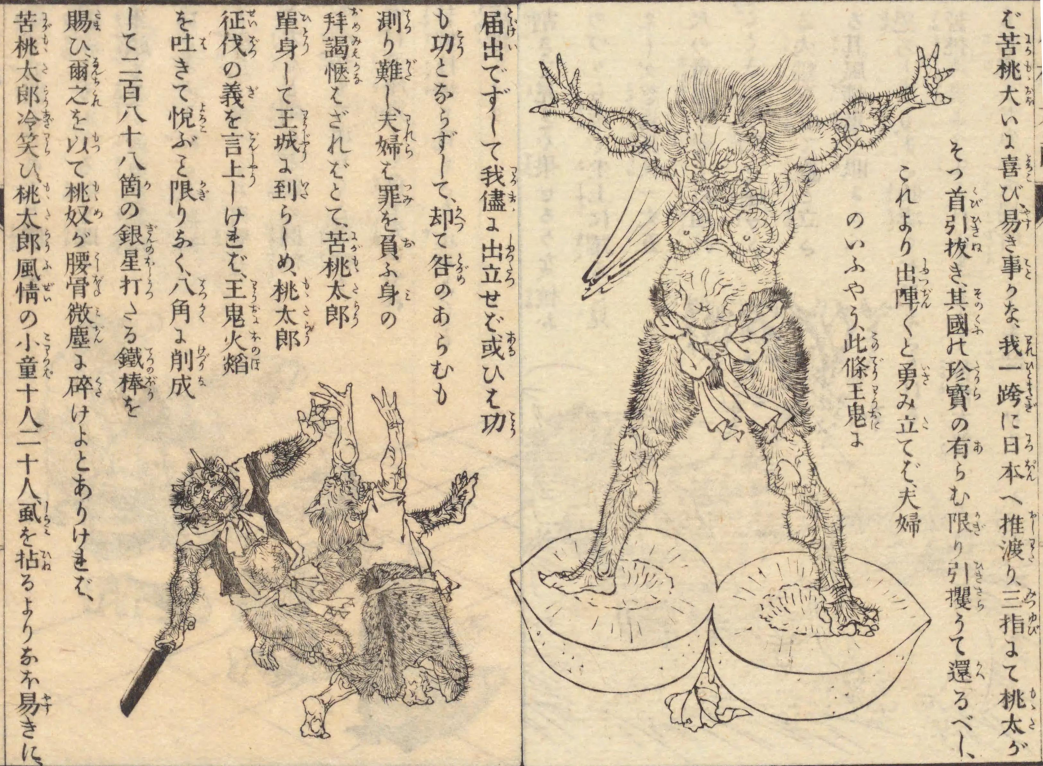 む苦桃大いに喜び、易き事かな、我一跨に日本へ推渡り、三指にて桃太が
そつ首引抜き其國の珍寶の有らむ限り引攫うて還るべし、
これより出陣〱と勇み立てば、夫婦
のいふやう、此條王鬼に
届出でずして我儘に出立せば或ひは功
も功とならずして、却て咎のあらむも
測り難し、夫婦は罪を負ふ身の
拜謁愜はざればとて、苦桃太郎
單身して王城に到らしめ、桃太郎
征伐の義を言上しければ、王鬼火焰
を吐きて悅ぶこと限りなく、八角に削成
して二百八十八箇の銀星打たる鐵棒を
賜ひ爾之を以て桃奴が腰骨微塵に碎けよとありければ、
苦桃太郎冷笑ひ、桃太郎風情の小童十人二十人虱を拈るよりなほ易きに、